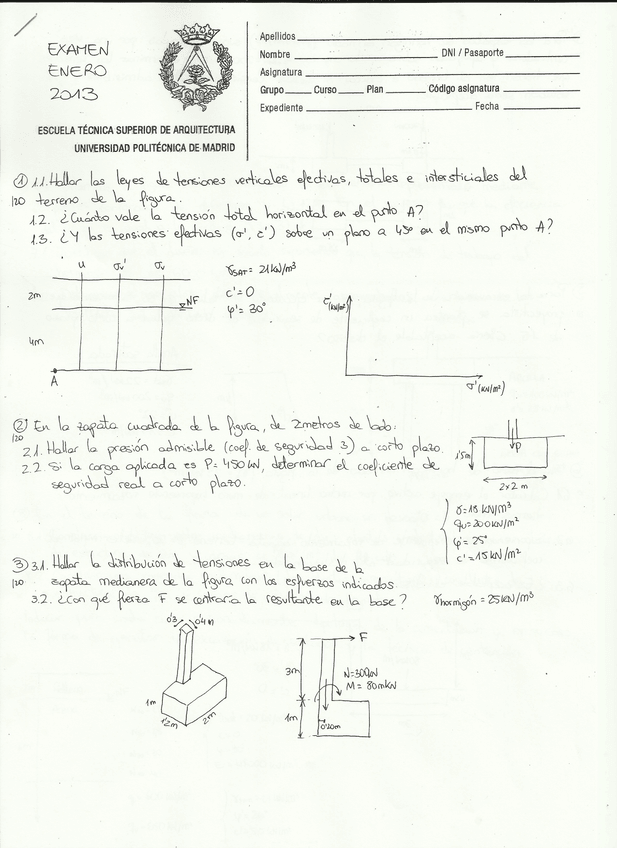 EXAMEN
ENERO
2013
ESCUELA TÉCNICA SUPERIOR DE ARQUITECTURA
UNIVERSIDAD POLITÉCNICA DE MADRID
Apellidos
Nombre DNI / Pasaporte
Asignatura
Grupo Curso Plan Código asignatura
Expediente Fecha
① 1.1. Hallar las leyes de tensiones verticales efectivas, totales e intersticiales del
120 terreno de la figura.
1.2. ¿Cuánto vale la tensión total horizontal en el punto A?
1.3. ¿Y las tensiones efectivas (σ', τ') sobre un plano a 45° en el mismo punto A?
u σv' σv
2m
NF
4m
A
γSAT = 21 kN/m³
c' = 0
φ' = 30°
τ' (kN/m²)
σ' (kN/m²)
② En la zapata cuadrada de la figura, de 2 metros de lado:
120
2.1. Hallar la presión admisible (coef. de seguridad 3) a corto plazo.
2.2. Si la carga aplicada es P= 450 kN, determinar el coeficiente de
seguridad real a corto plazo.
P
1'5m
2 x 2 m
γ = 18 KN/m³
qu = 200 KN/m²
φ' = 25°
c' = 15 KN/m²
③ 3.1. Hallar la distribución de tensiones en la base de la
120 zapata medianera de la figura con los esfuerzos indicados
3.2. ¿Con qué fuerza F se centraría la resultante en la base?
γhormigón = 25 KN/m³
0'3 0'4 m
1m
1'2m
2m
F
3m
N=300kN
M = 80mkN
1m
0'20m